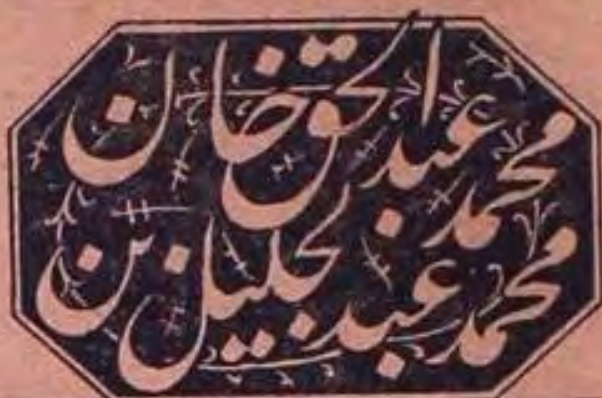 محمد عبدالحق خان
محمد عبدالجلیل بن